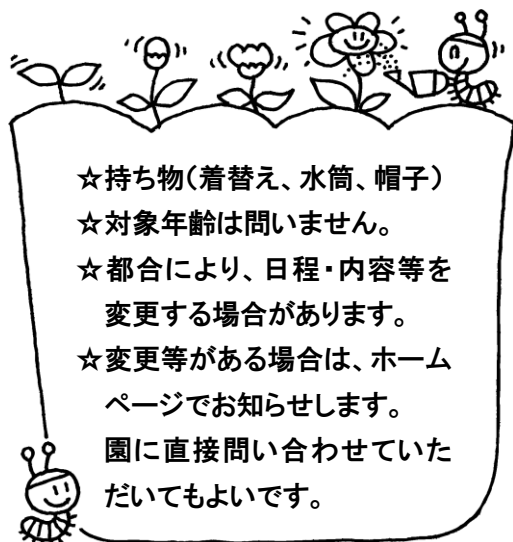 ☆持ち物(着替え、水筒、帽子)
☆対象年齢は問いません。
☆都合により、日程・内容等を
変更する場合があります。
☆変更等がある場合は、ホーム
ページでお知らせします。
園に直接問い合わせていた
だいてもよいです。